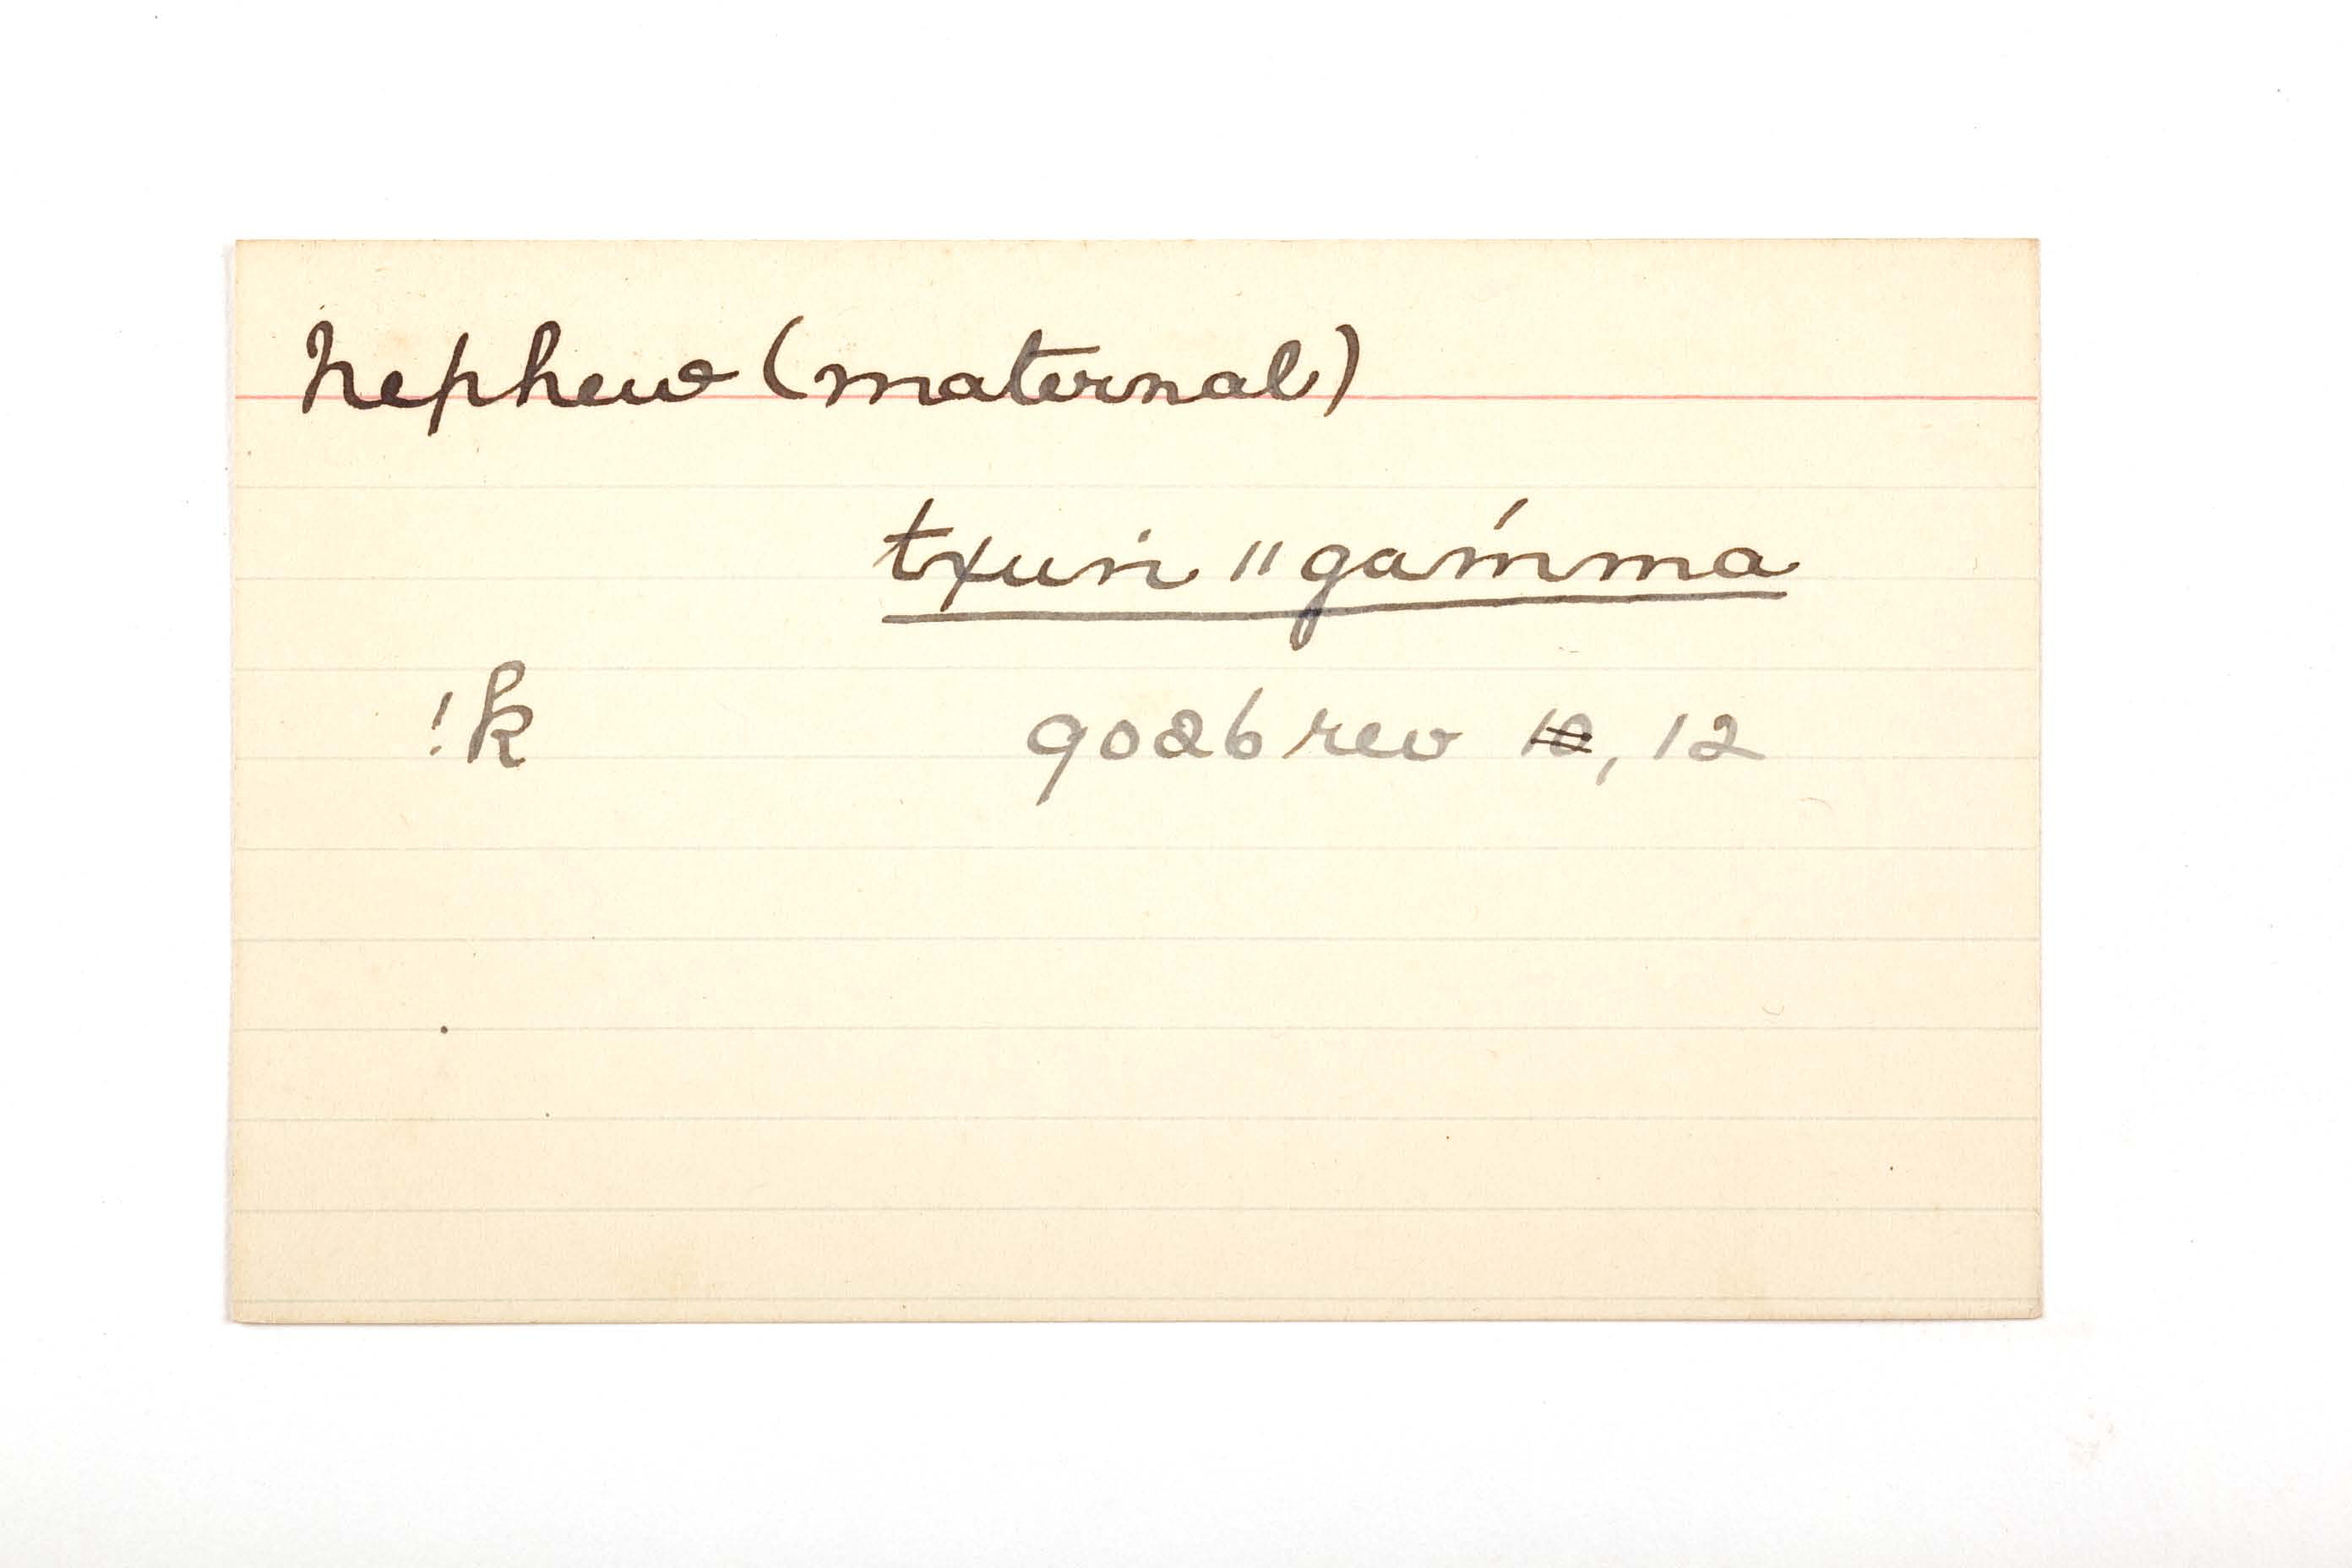 Nephew (maternal)
txuni ǁgaḿma
!k 9026 rev 10, 12